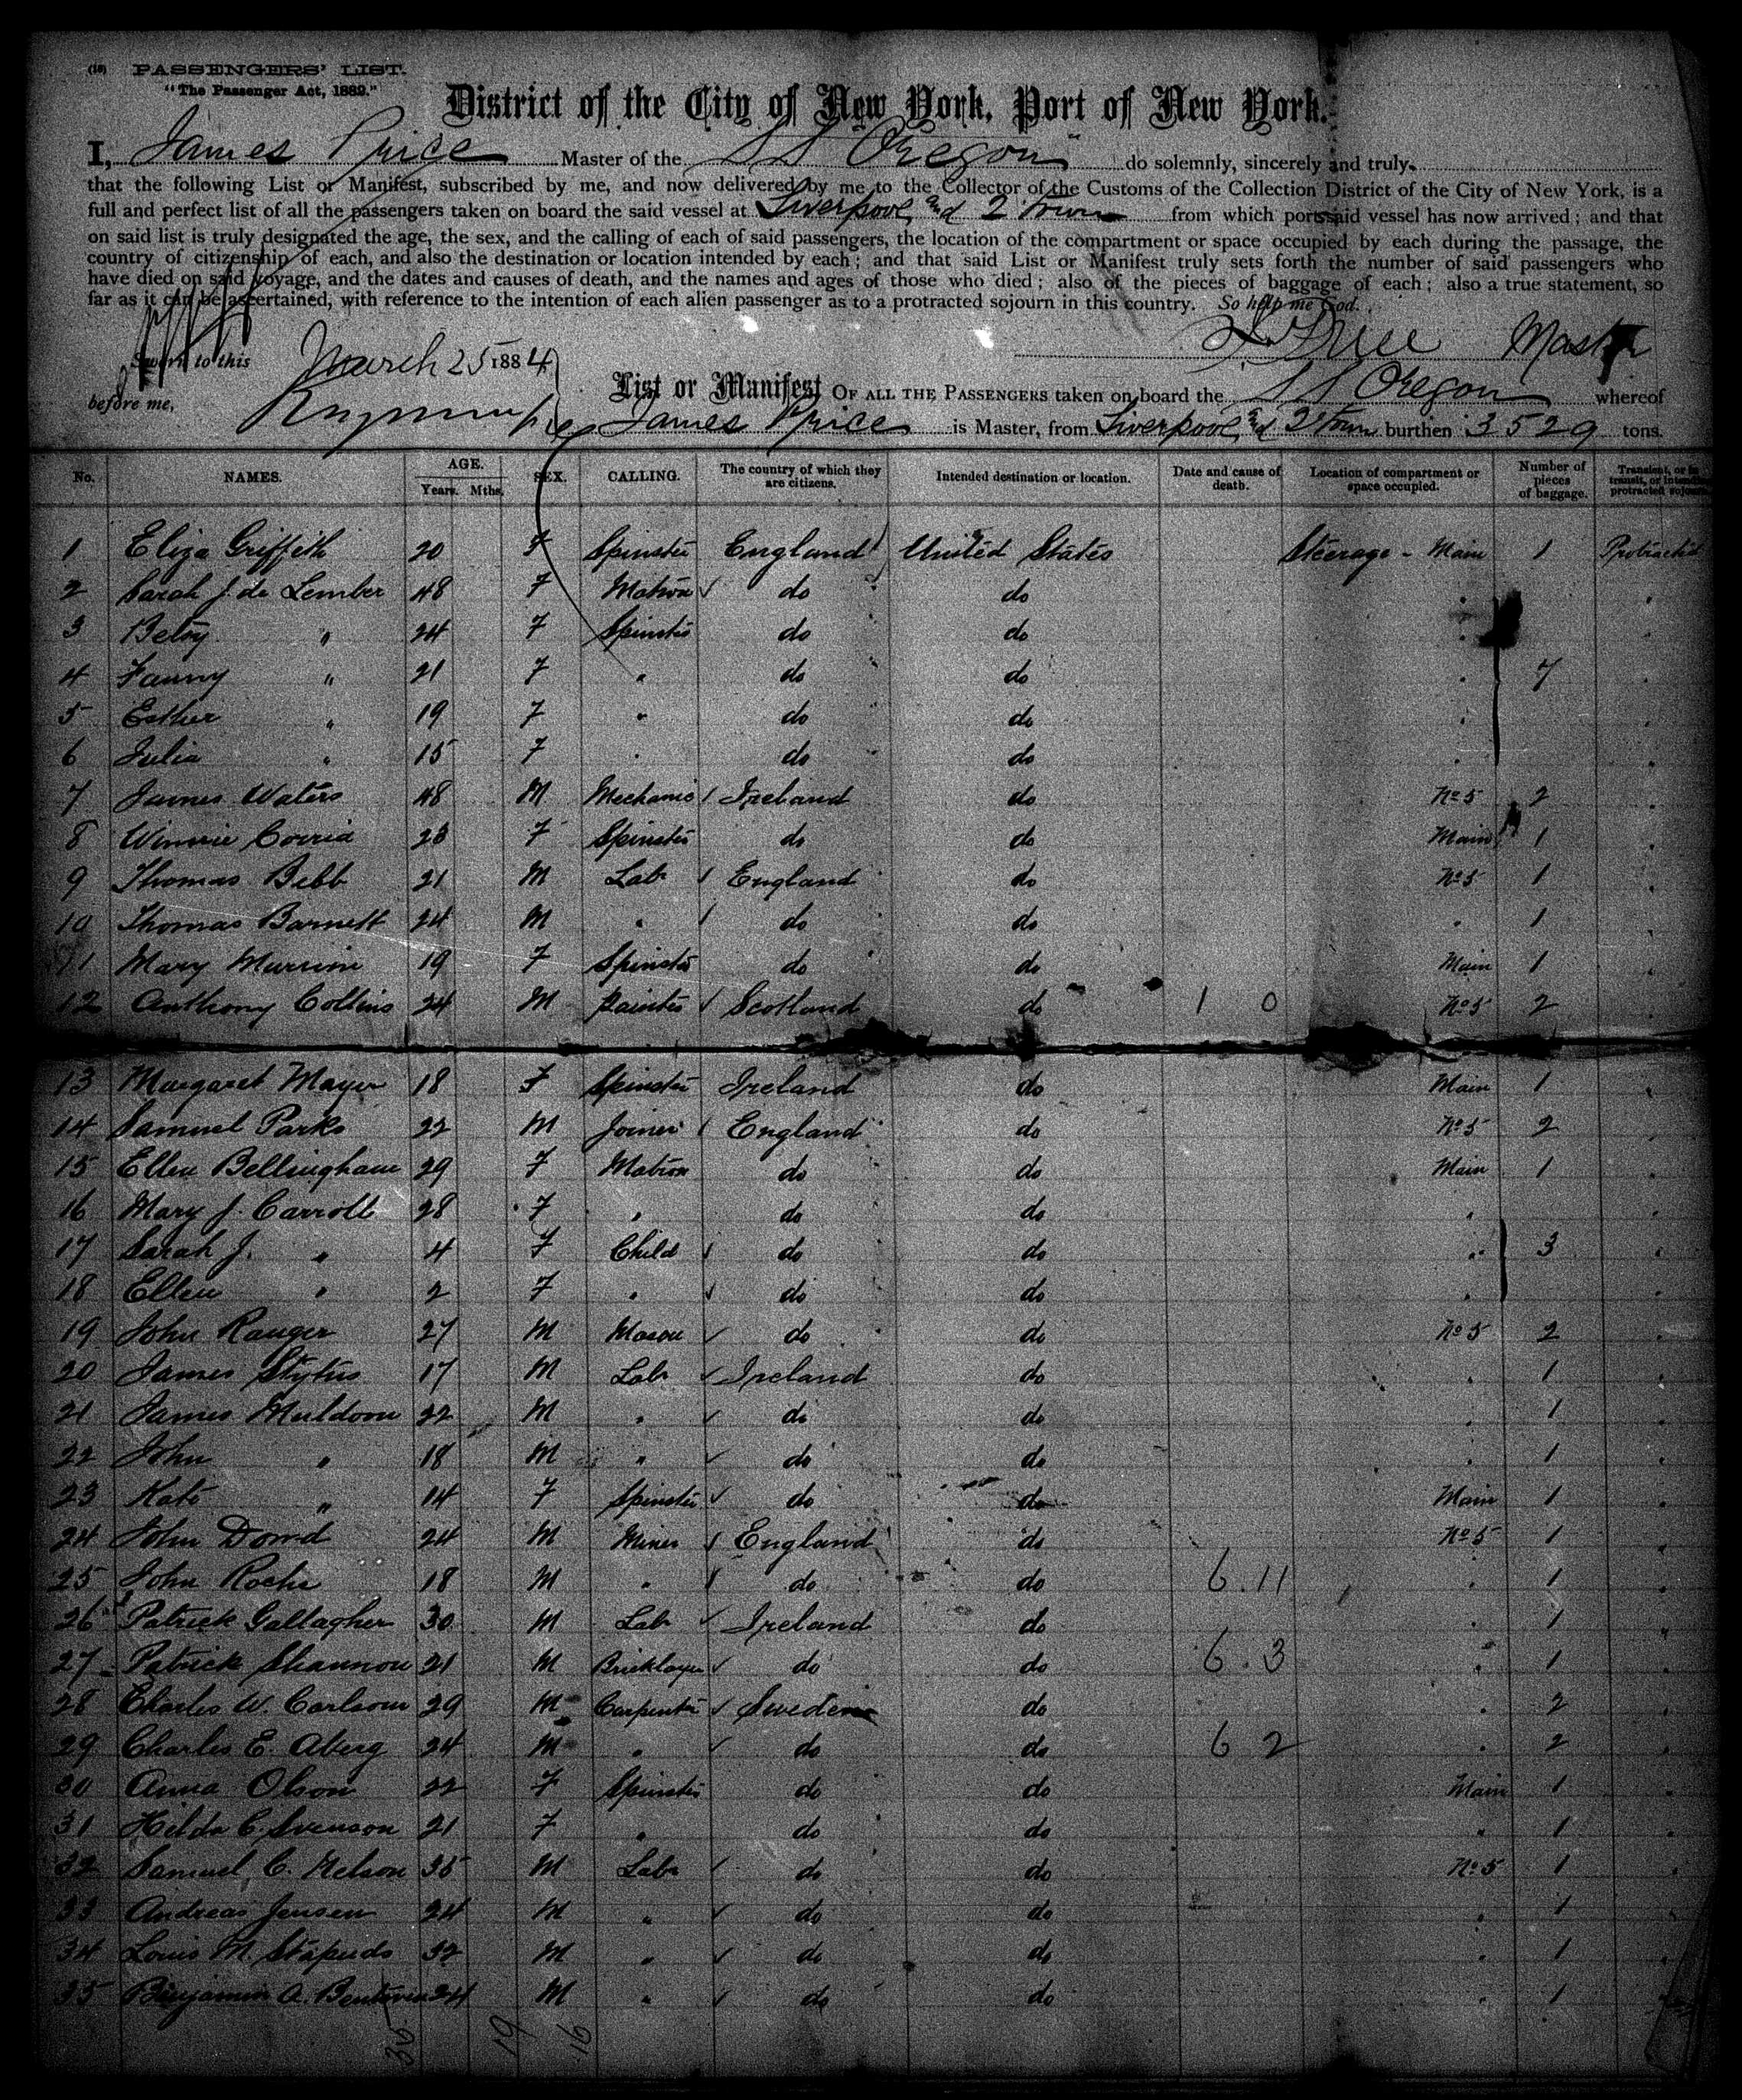 (18) PASSENGERS' LIST.
"The Passenger Act, 1882."
District of the City of New York, Port of New York.
I, James Price Master of the SS Oregon do solemnly, sincerely and truly
that the following List or Manifest, subscribed by me, and now delivered by me to the Collector of the Customs of the Collection District of the City of New York, is a
full and perfect list of all the passengers taken on board the said vessel at Liverpool and Q Town from which port said vessel has now arrived; and that
on said list is truly designated the age, the sex, and the calling of each of said passengers, the location of the compartment or space occupied by each during the passage, the
country of citizenship of each, and also the destination or location intended by each; and that said List or Manifest truly sets forth the number of said passengers who
have died on said voyage, and the dates and causes of death, and the names and ages of those who died; also of the pieces of baggage of each; also a true statement, so
far as it can be ascertained, with reference to the intention of each alien passenger as to a protracted sojourn in this country. So help me God.
Price Master
Sworn to this March 25 1884
before me,
List or Manifest OF ALL THE PASSENGERS taken on board the SS Oregon whereof
James Price is Master, from Liverpool and Q'town burthen 3529 tons.
No. NAMES. AGE. Years. Mths. SEX. CALLING. The country of which they are citizens. Intended destination or location. Date and cause of death. Location of compartment or space occupied. Number of pieces of baggage. Transient, or in transit, or intending protracted sojourn
1 Eliza Griffith 20 F Spinster England United States Steerage - Main 1 Protracted
2 Sarah J. de Lember 48 F Matron do do "
3 Betsy " 24 F Spinster do do "
4 Fanny " 21 F " do do " 7
5 Esther " 19 F " do do "
6 Julia " 15 F " do do "
7 James Waters 48 M Mechanic Ireland do No 5 2
8 Winnie 23 F Spinster do do Main 1
9 Thomas Bebb 21 M Labr England do No 5 1
10 Thomas Barnett 24 M " do do " 1
11 Mary 19 F Spinster do do Main 1
12 Anthony Collins 24 M Painter Scotland do 1 0 No 5 2
13 Margaret Mayer 18 F Spinster Ireland do Main 1
14 Samuel Parks 22 M Joiner England do No 5 2
15 Ellen Bellingham 29 F Matron do do Main 1
16 Mary J. Carroll 28 F " do do "
17 Sarah J. " 4 F Child do do " 3
18 Ellen " 2 F " do do "
19 John Ranger 27 M Mason do do No 5 2
20 James 17 M Labr Ireland do " 1
21 James Muldoon 22 M " do do " 1
22 John " 18 M " do do " 1
23 Kate " 14 F Spinster do do Main 1
24 John Dowd 24 M Miner England do No 5 1
25 John Roche 18 M " do do 6.11 " 1
26 Patrick Gallagher 30 M Labr Ireland do " 1
27 Patrick Shannon 21 M Bricklayer do do 6.3 " 1
28 Charles W. Carlson 29 M Carpenter Sweden do " 2
29 Charles E. Aberg 24 M " do do 6 2 " 2
30 Anna Olson 22 F Spinster do do Main 1
31 Hilda C. Svenson 21 F " do do " 1
32 Samuel C. Nelson 35 M Labr do do No 5 1
33 Andreas Jensen 24 M " do do " 1
34 Louis M. 32 M " do do " 1
35 Benjamin A. 24 M " do do " 1
19 16